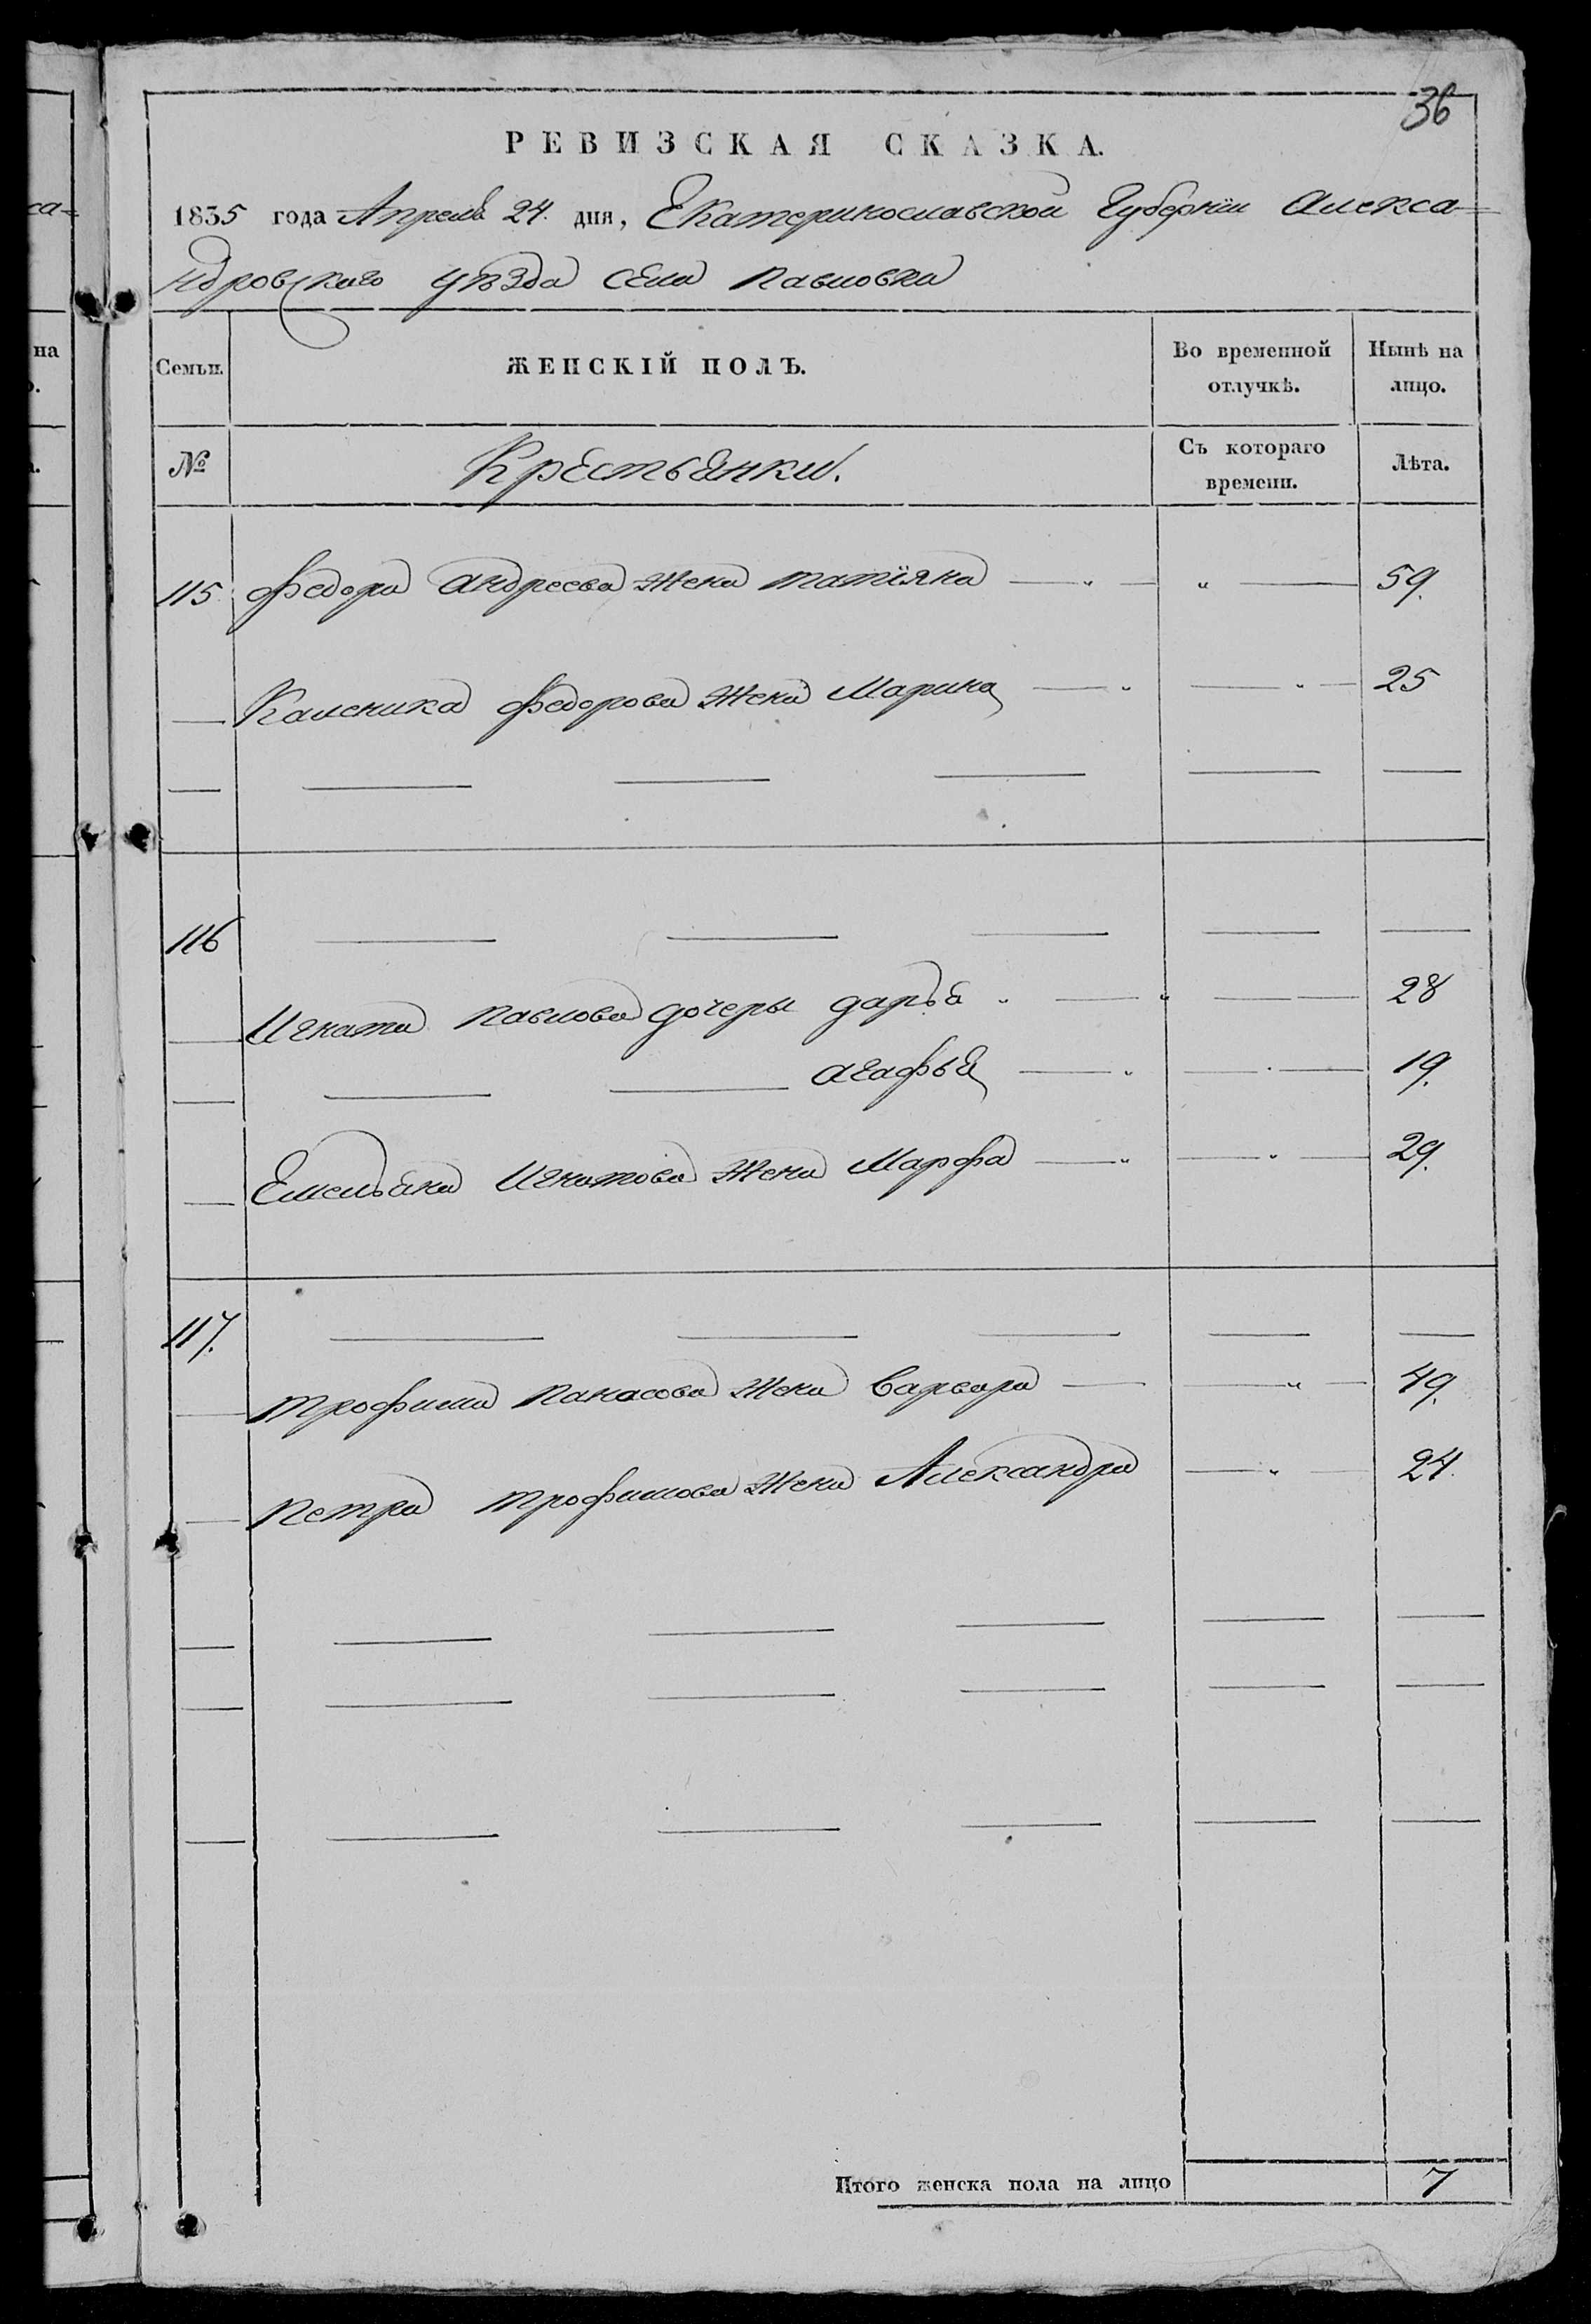 36
РЕВИЗСКАЯ СКАЗКА.
1835 года Апреля 24. дня, Екатеринославской Губернїи Алекса-
ндровского уѣзда села Павловки
Семьи. ЖЕНСКІЙ ПОЛЪ. Во временной отлучкѣ. Нынѣ на лицо.
№ Крестьянки. Съ котораго времени. Лѣта.
115 Федора Андреева жена татїяна — „ — „ — 59.
— Каленика Федорова жена Марина — „ — „ — 25
— — — — — —
116 — — — — —
— Игната Павлова дочеры дарья „ — „ — — 28
— — — агафья — „ — . — 19.
— Емельяна Игнатова жена Марфа — „ — „ — 29.
117. — — — — —
— трофима Панасова жена Варвара — — „ — 49.
— Петра трофимова жена Александра — „ — 24.
— — — — — —
— — — — — —
— — — — — —
Итого женска пола на лицо 7
са-
на